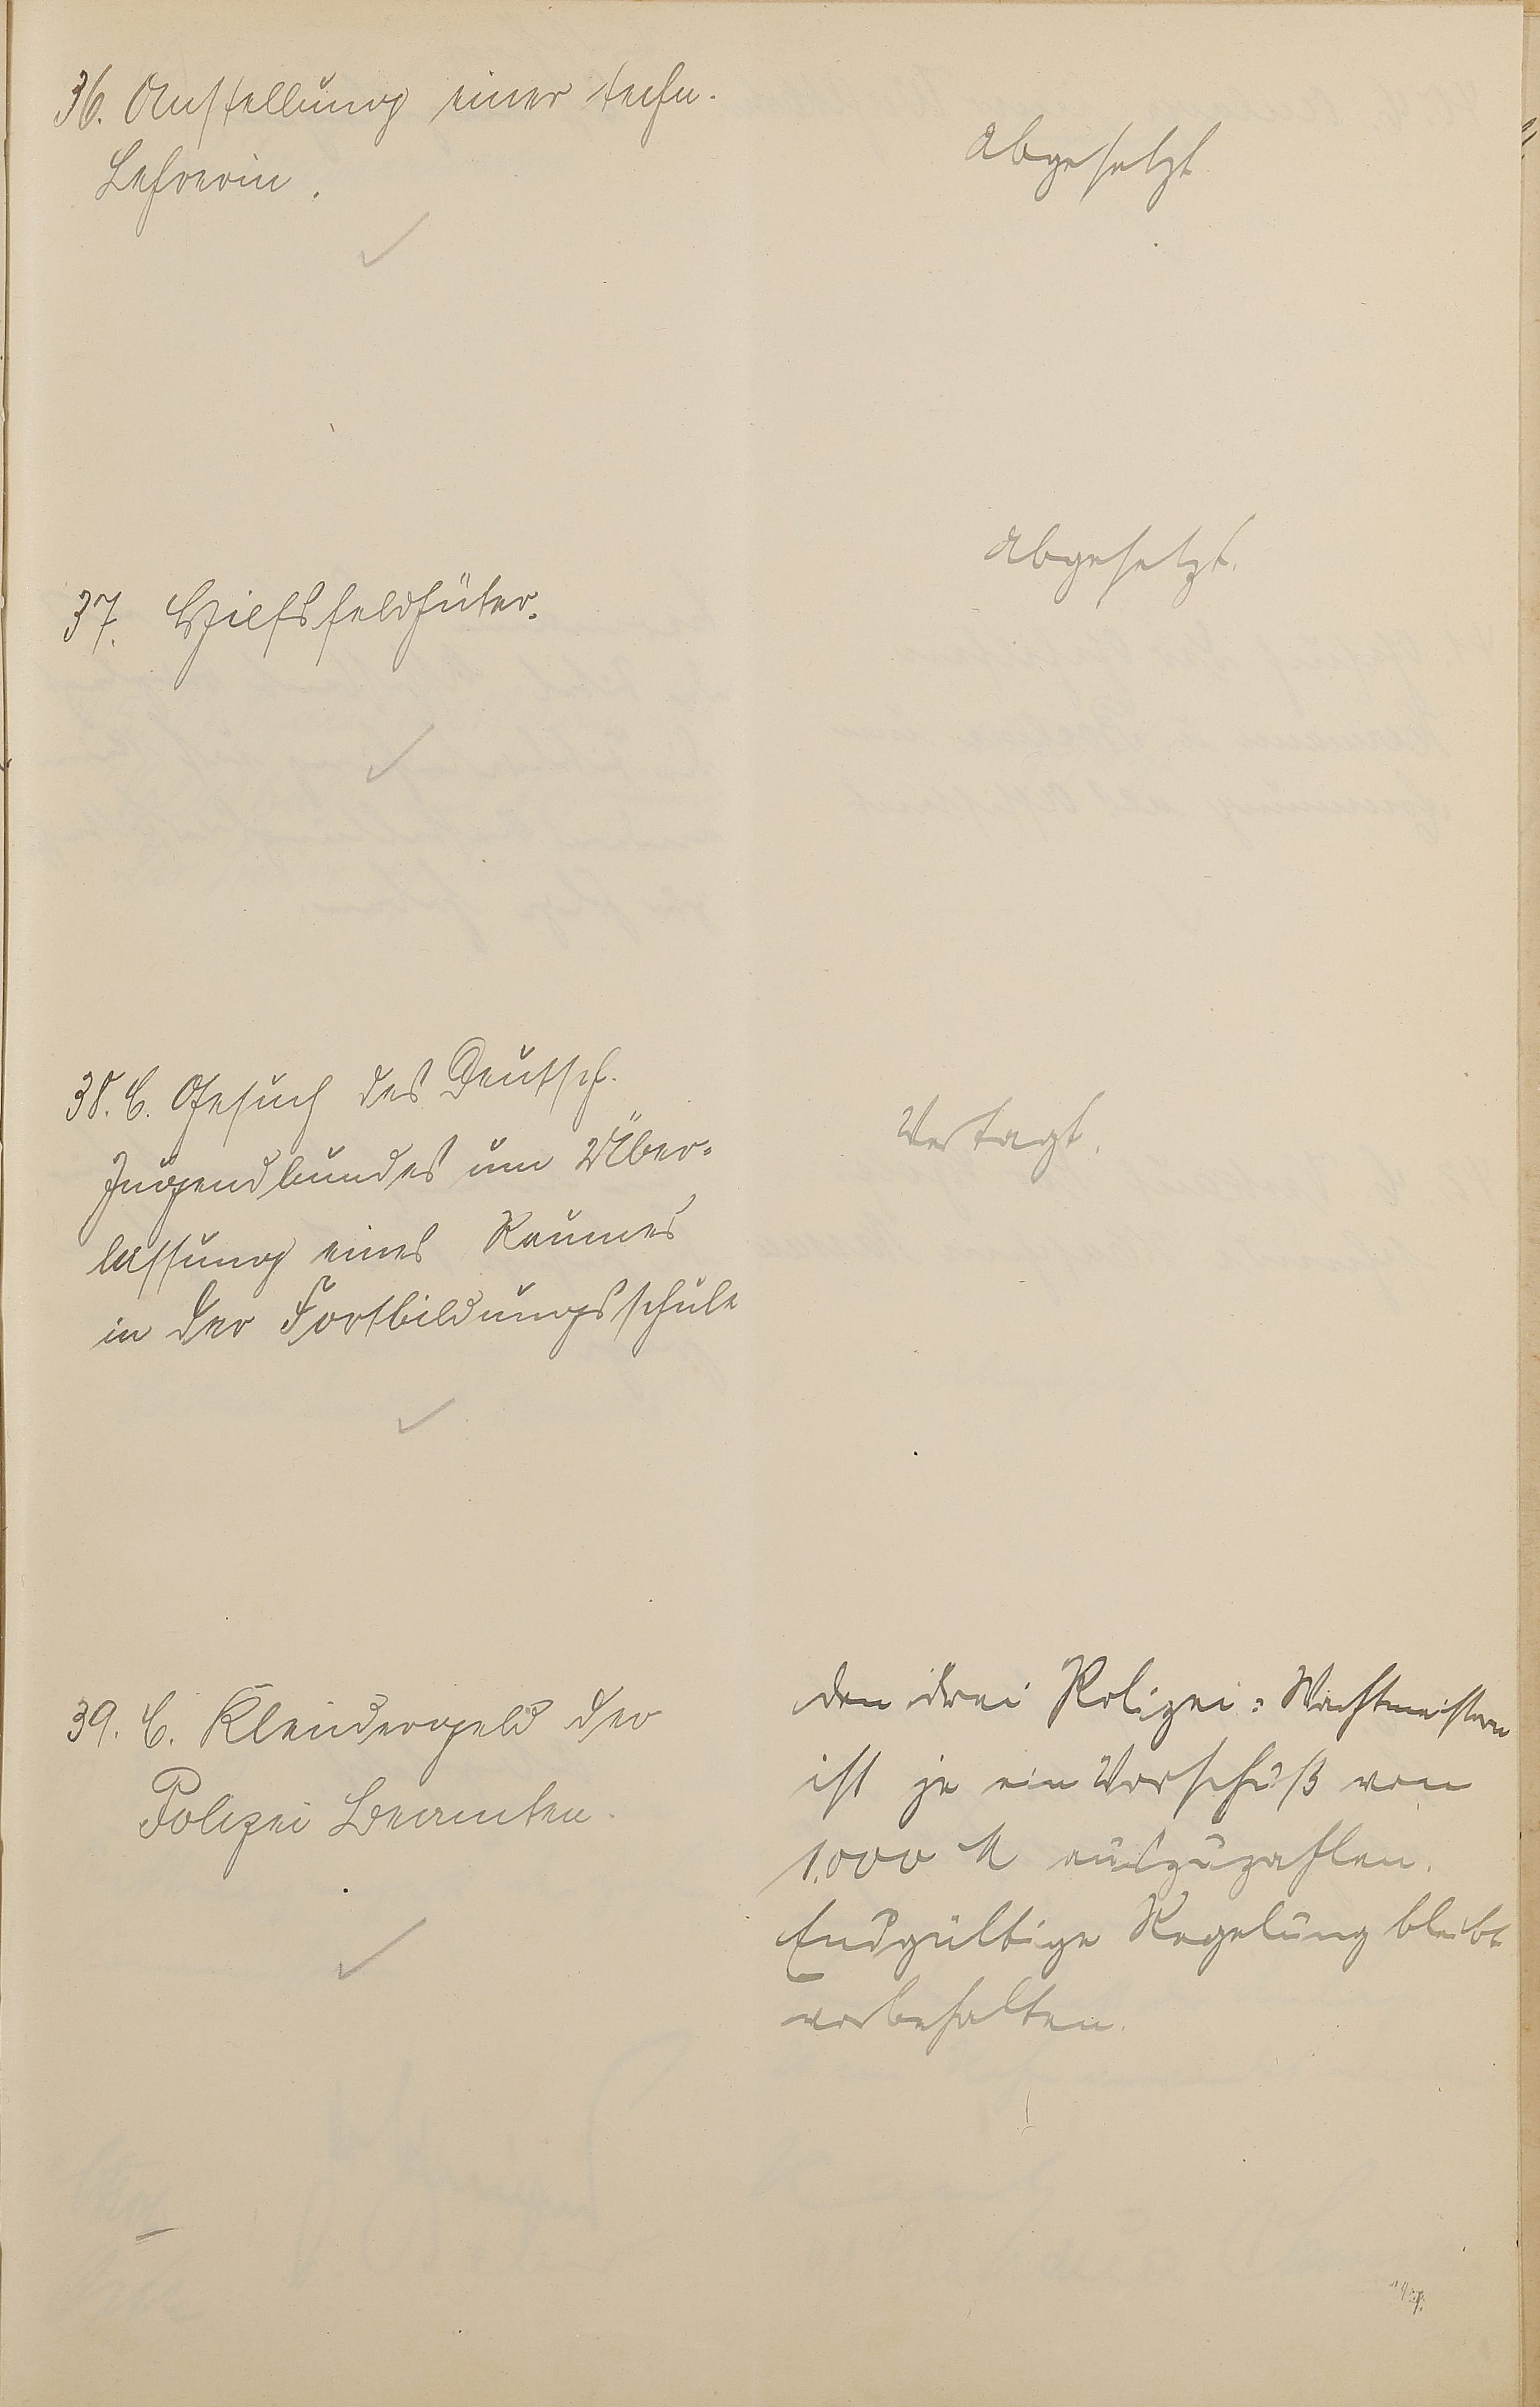 36. Anstellung einer techn.
Lehrerin.
Abgesetzt
37. Hilfsfeldhüter.
Abgesetzt.
38. C. Gesuch des Deutsch.
Jugendbundes um Über-
lassung eines Raumes
in der Fortbildungsschule
Vertagt.
39. C. Kleidergeld der
Polizei Beamten.
Den drei Polizei-Wachtmeistern
ist je ein Vorschuß von
1.000 M auszuzahlen.
Endgültige Regelung bleibt
vorbehalten.